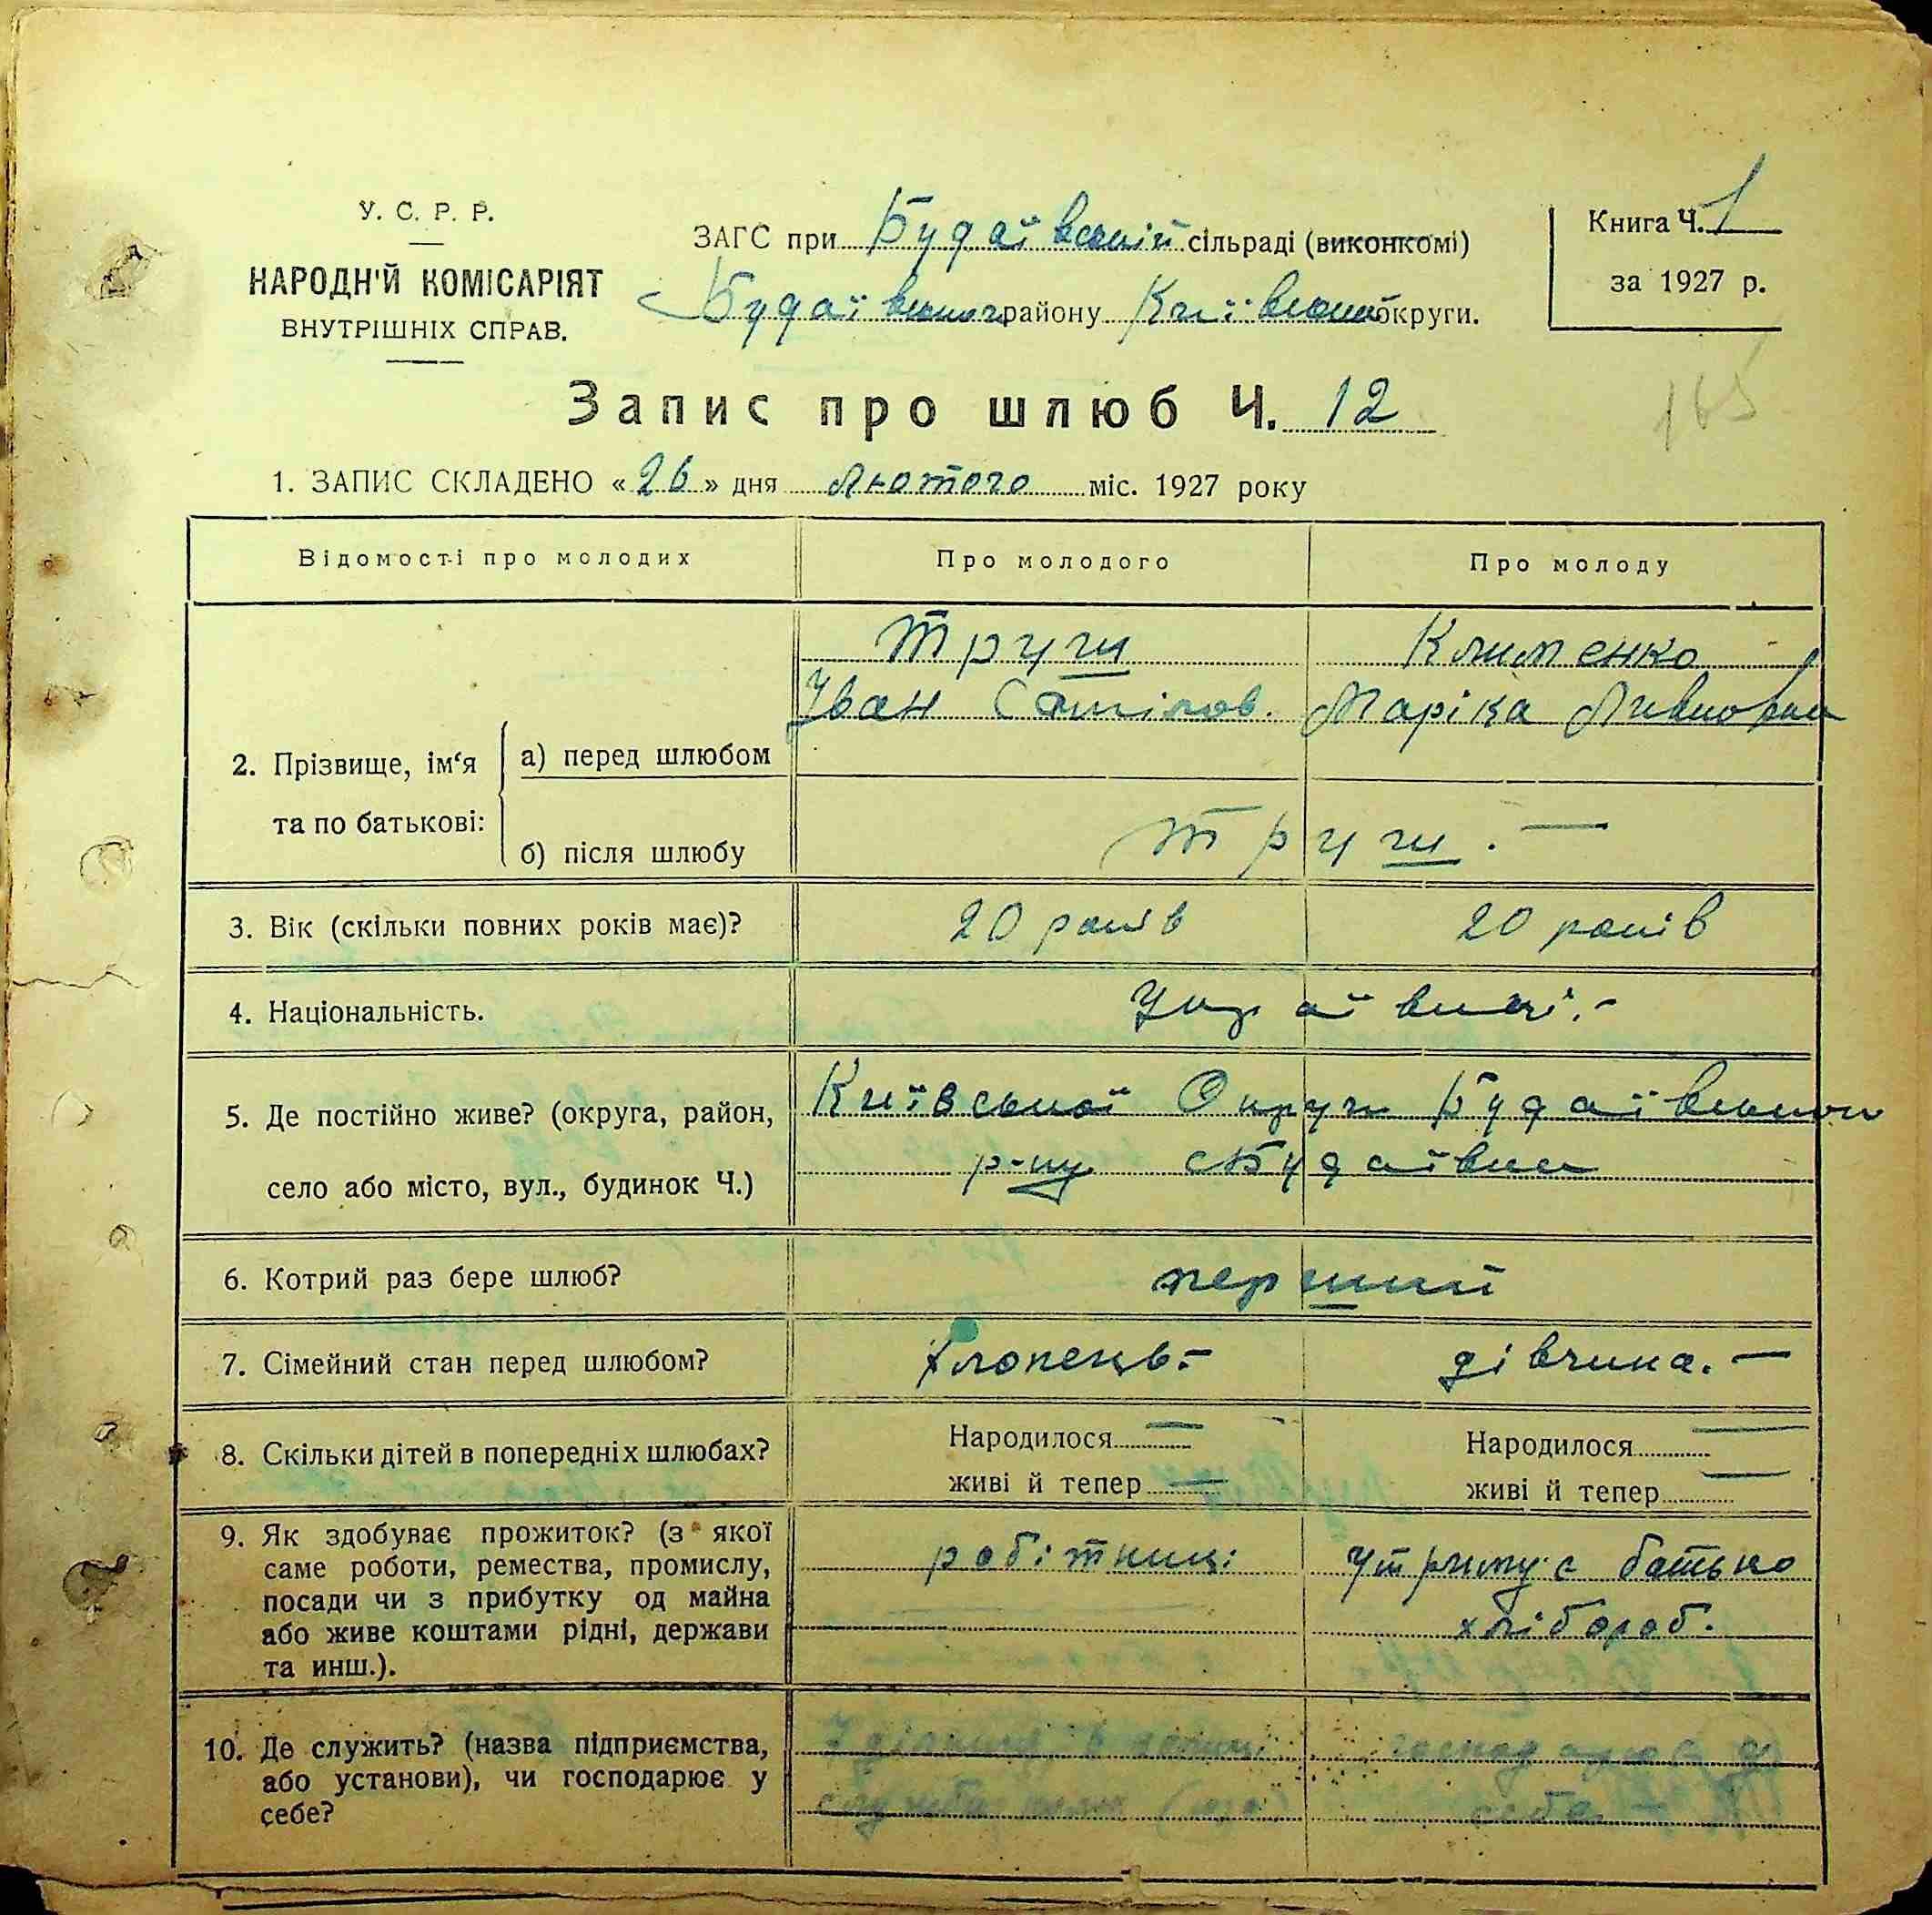 У. С. Р. Р.
НАРОДН'Й КОМІСАРІЯТ
ВНУТРІШНІХ СПРАВ.
ЗАГС при Будаївській сільраді (виконкомі)
Будаївського району Київської округи.
Книга Ч. 1
за 1927 р.
Запис про шлюб Ч. 12
165
1. ЗАПИС СКЛАДЕНО «26» дня Лютого міс. 1927 року
Відомості про молодих Про молодого Про молоду
2. Прізвище, ім'я та по батькові:
а) перед шлюбом
Труш Клименко
Іван Маріка
б) після шлюбу
Труш. —
3. Вік (скільки повних років має)? 20 років 20 років
4. Національність. Українці. -
5. Де постійно живе? (округа, район, Київської Округи Будаївського
село або місто, вул., будинок Ч.) р-ну с Будаївка
6. Котрий раз бере шлюб? перший
7. Сімейний стан перед шлюбом? Хлопець. - дівчина. —
8. Скільки дітей в попередніх шлюбах? Народилося — Народилося —
живі й тепер — живі й тепер —
9. Як здобуває прожиток? (з якої робітниці утримує батько
саме роботи, ремества, промислу, хлібороб.
посади чи з прибутку од майна
або живе коштами рідні, держави
та инш.).
10. Де служить? (назва підприємства,
або установи), чи господарює у
себе?